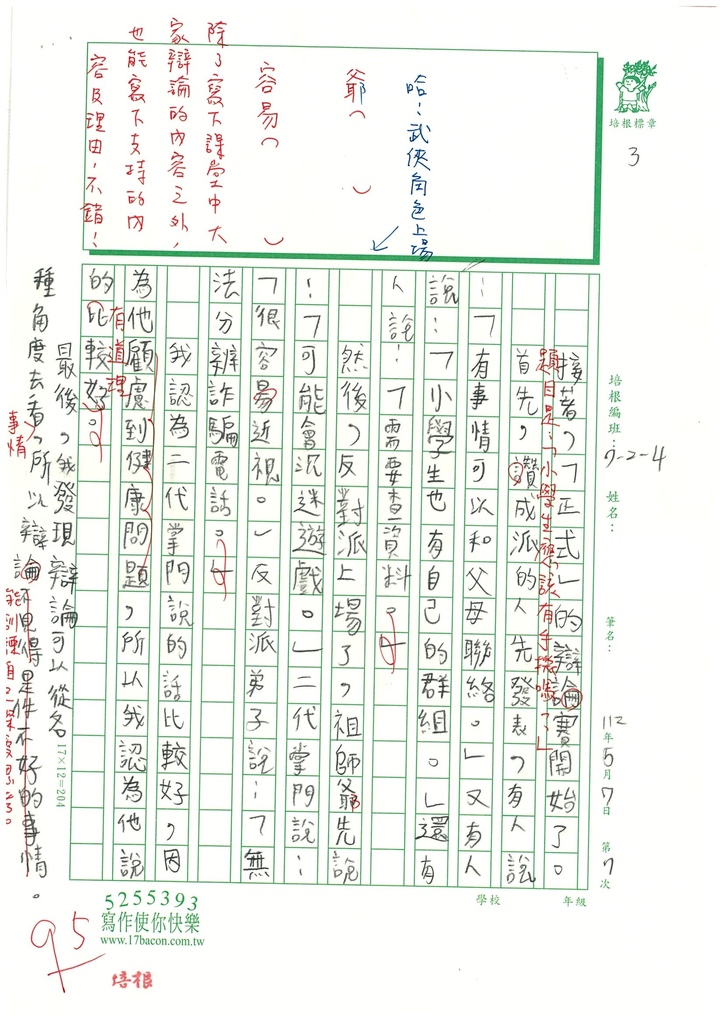 培根標章
3
哈！武俠角色上場
爺（ ）
容易（ ）
除了寫下課堂中大
家辯論的內容之外，
也能寫下支持的內
容及理由，不錯！
培根編班：
7-2-4
姓名：
筆名：
112年5月7日 第7次
學校 年級
接著，「正式」的辯論賽開始了。
題目是：「小學生應該有手機嗎？」
首先，讚成派的人先發表，有人說
：「有事情可以和父母聯絡。」又有人
說：「小學生也有自己的群組。」還有
人說：「需要查資料。」
然後，反對派上場了，祖師爺先說
：「可能會沉迷遊戲。」二代掌門說：
「很容易近視。」反對派弟子說：「無
法分辨詐騙電話。」
我認為二代掌門說的話比較好，因
為他顧慮到健康問題，所以我認為他說
的比較好。
有道理
最後，我發現辯論可以從各
種角度去看，所以辯論不見得是件不好的事情。
事情
17×12=204
95
5255393
寫作使你快樂
www.17bacon.com.tw
培根